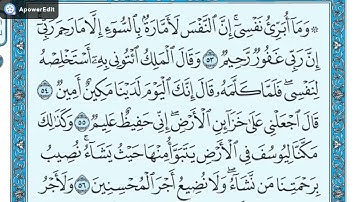 ApowerEdit
۞ وَمَا أُبَرِّئُ نَفْسِي ۚ إِنَّ النَّفْسَ لَأَمَّارَةٌ بِالسُّوءِ إِلَّا مَا رَحِمَ رَبِّي
إِنَّ رَبِّي غَفُورٌ رَّحِيمٌ ۝٥٣ وَقَالَ الْمَلِكُ ائْتُونِي بِهِ أَسْتَخْلِصْهُ
لِنَفْسِي ۖ فَلَمَّا كَلَّمَهُ قَالَ إِنَّكَ الْيَوْمَ لَدَيْنَا مَكِينٌ أَمِينٌ ۝٥٤
قَالَ اجْعَلْنِي عَلَىٰ خَزَائِنِ الْأَرْضِ ۖ إِنِّي حَفِيظٌ عَلِيمٌ ۝٥٥ وَكَذَٰلِكَ
مَكَّنَّا لِيُوسُفَ فِي الْأَرْضِ يَتَبَوَّأُ مِنْهَا حَيْثُ يَشَاءُ ۚ نُصِيبُ
بِرَحْمَتِنَا مَن نَّشَاءُ ۖ وَلَا نُضِيعُ أَجْرَ الْمُحْسِنِينَ ۝٥٦ وَلَأَجْرُ